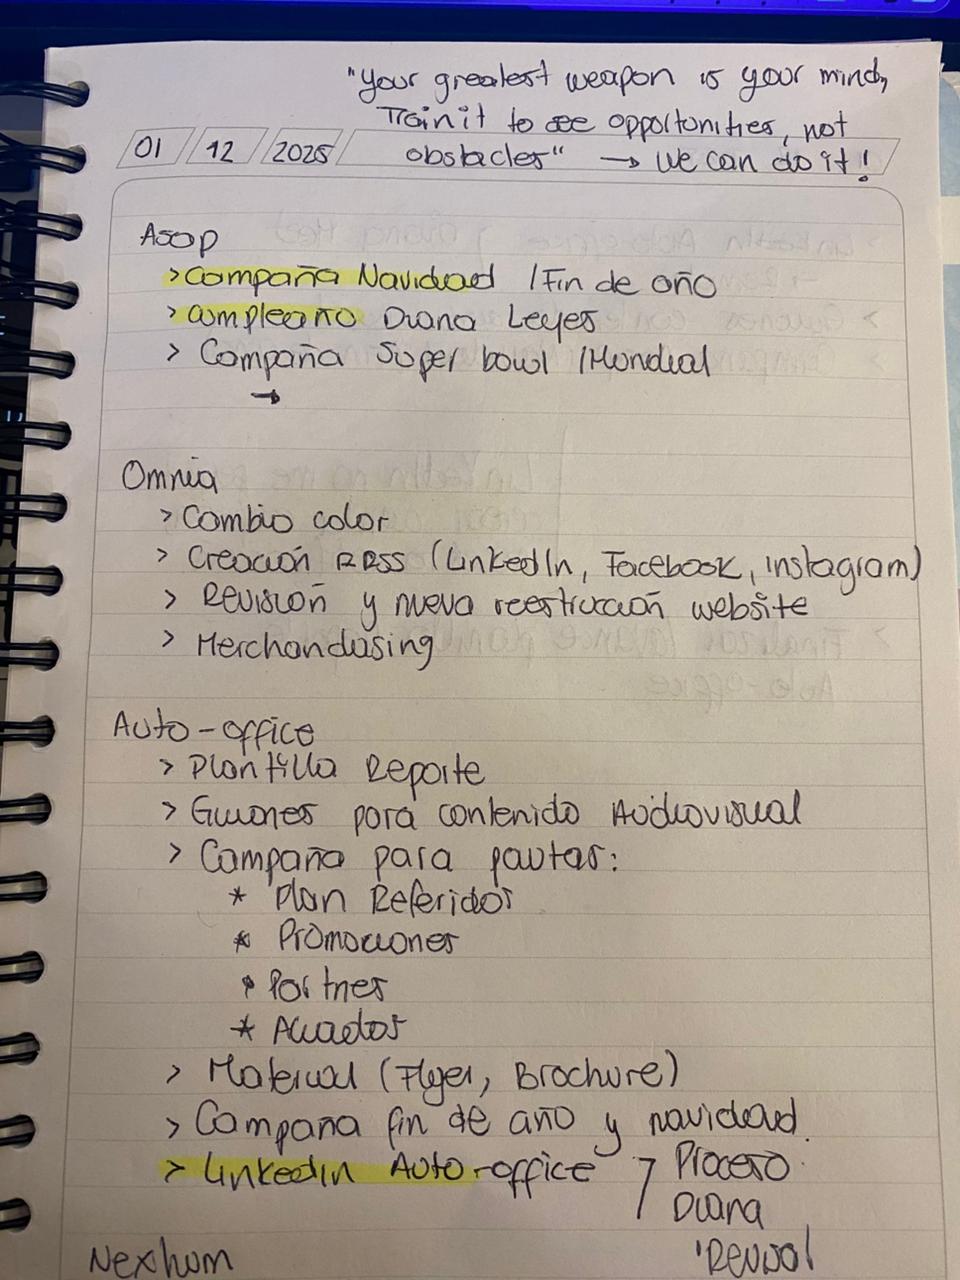 "Your greatest weapon is your mind,
Train it to see opportunities, not
01 / 12 / 2025 obstacles" → we can do it!
Asop
> Campaña Navidad / Fin de año
> Cumpleaño Diana Leyes
> Campaña Super bowl / Mundial
→
Omnia
> Cambio color
> Creación RRSS (LinkedIn, Facebook, Instagram)
> Revisión y nueva reestrucción website
> Merchandasing
Auto-office
> Plantilla Reporte
> Guiones para contenido Audiovisual
> Campaña para pautas:
* Plan Referidos
* Promociones
* Partnes
* Aliados
> Material (Flyer, Brochure)
> Campaña fin de año y navidad.
> LinkedIn Auto-office Proceso
Diana
Nexhum